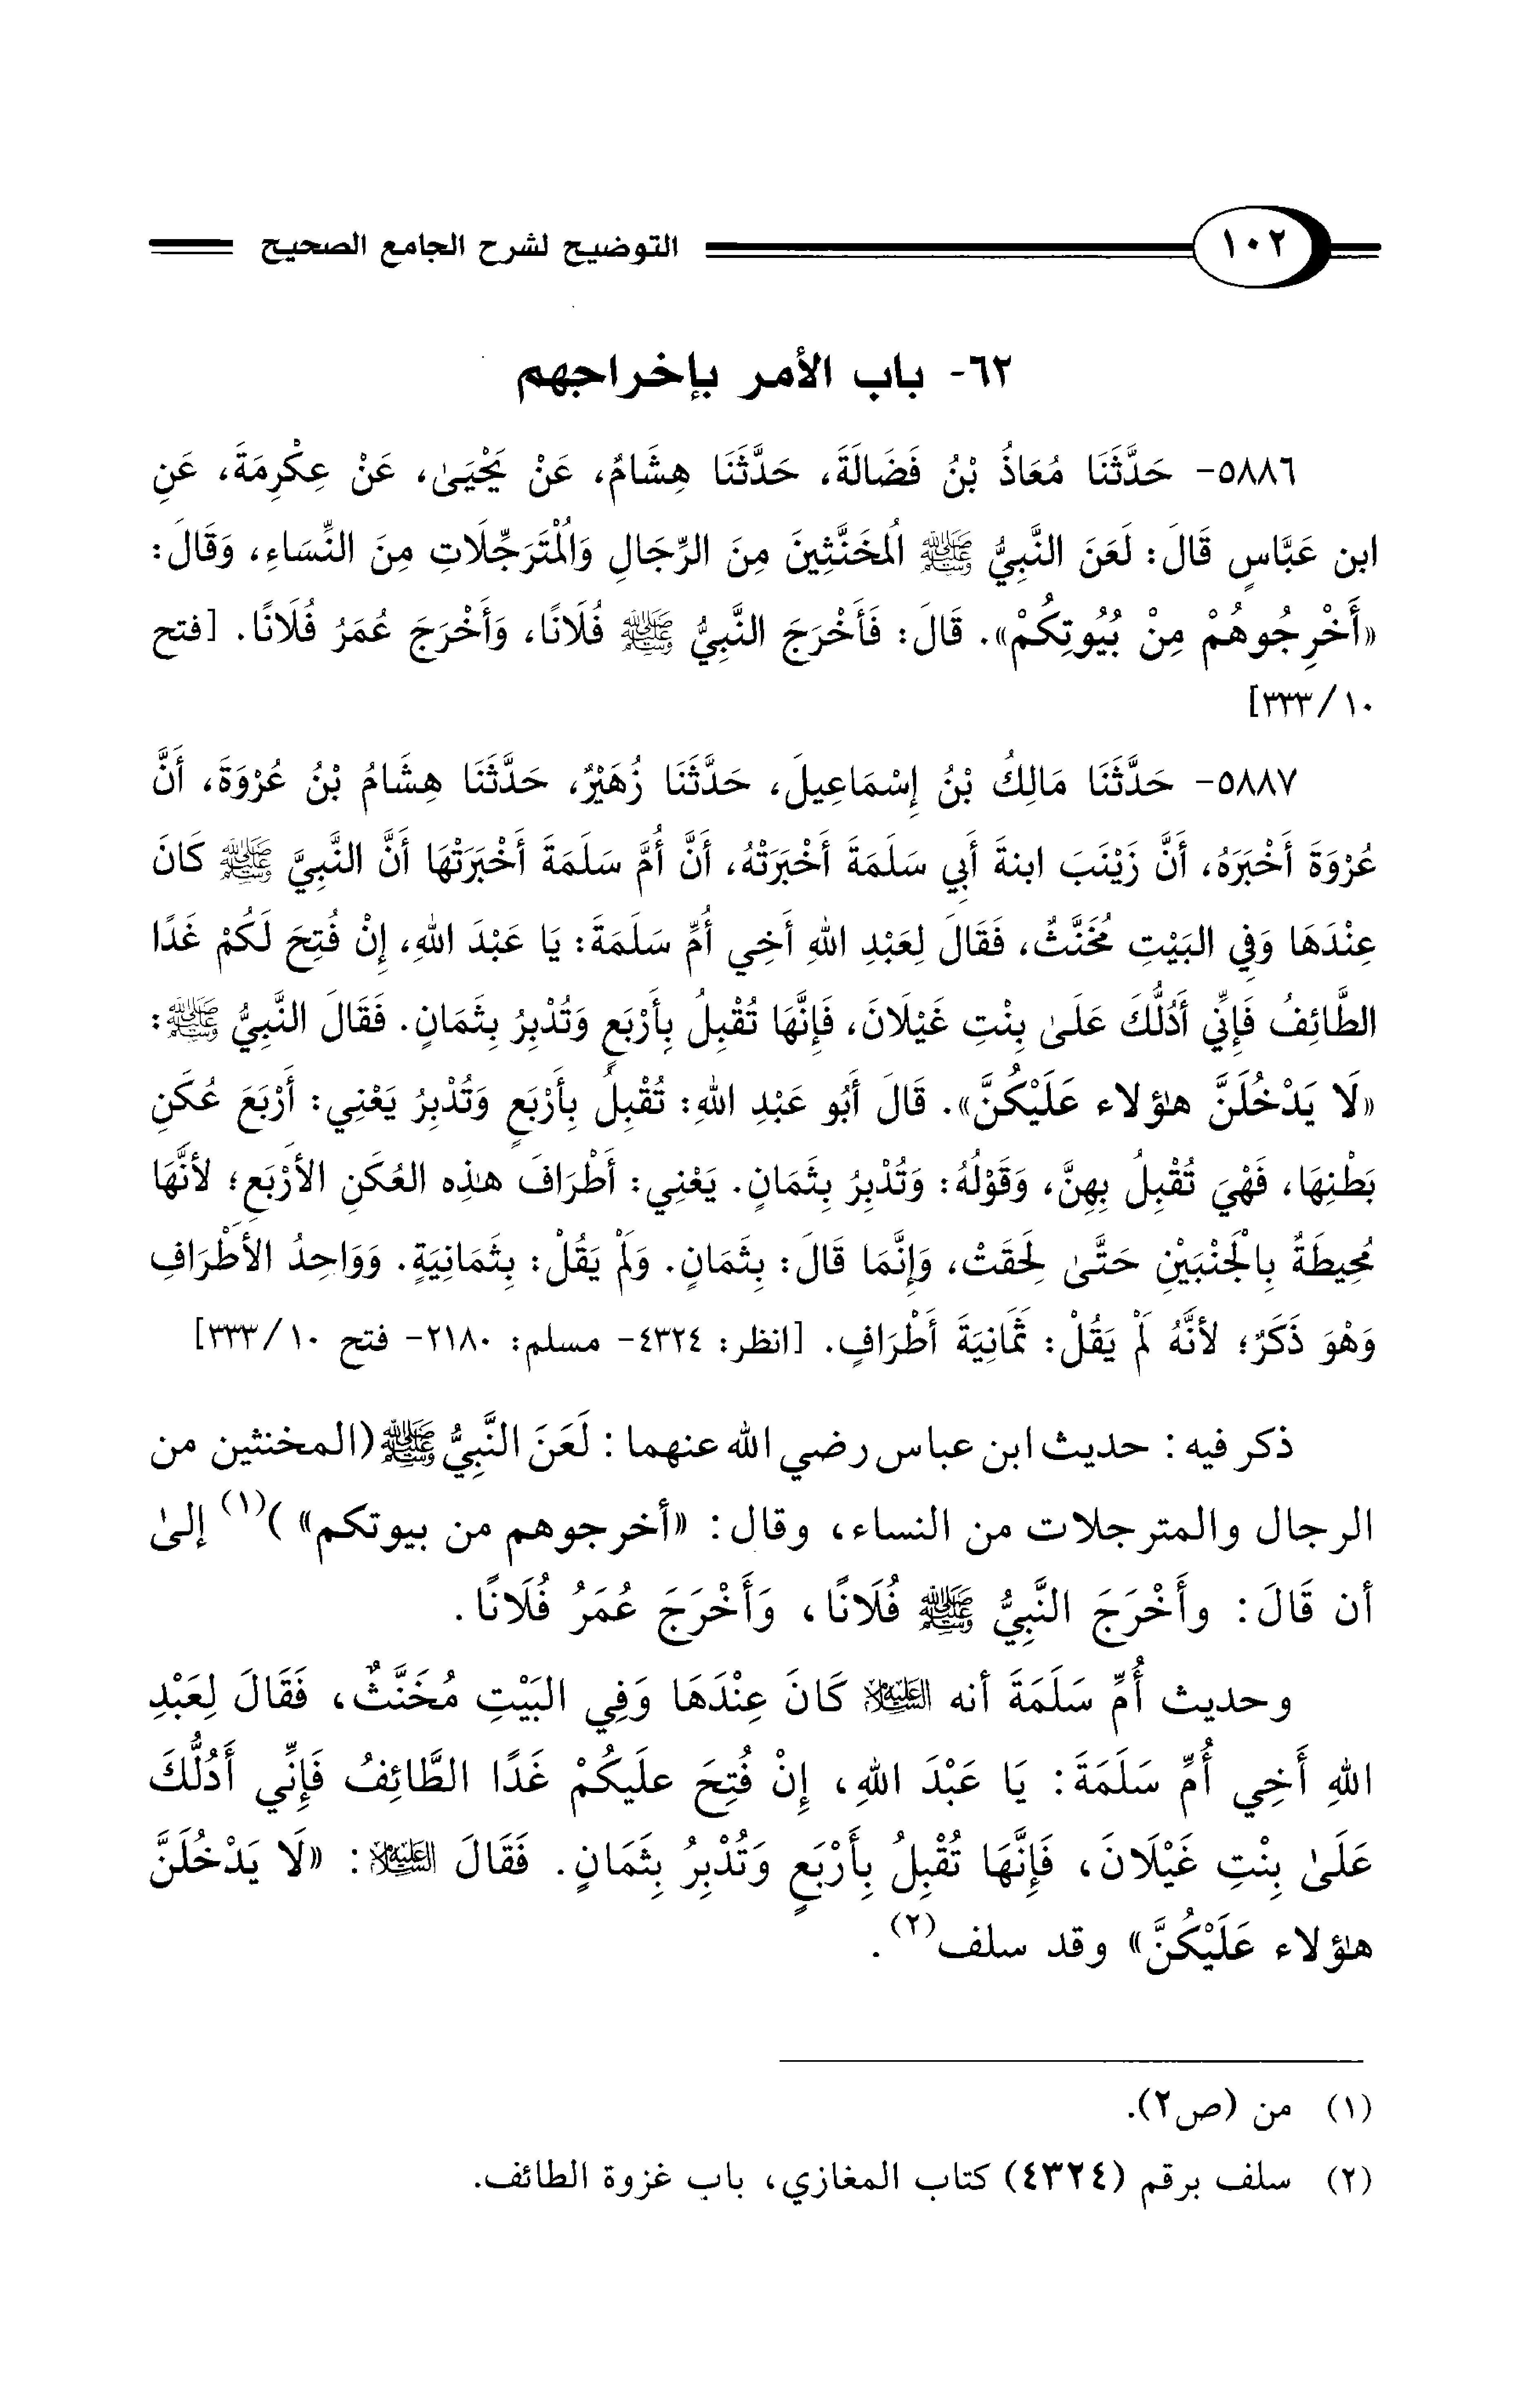 ١٠٢ التوضيح لشرح الجامع الصحيح
٦٢- باب الأمر بإخراجهم
٥٨٨٦- حَدَّثَنَا مُعَاذُ بْنُ فَضَالَةَ، حَدَّثَنَا هِشَامٌ، عَنْ يَحْيَىٰ، عَنْ عِكْرِمَةَ، عَنِ
ابن عَبَّاسٍ قَالَ: لَعَنَ النَّبِيُّ ﷺ الُمخَنَّثِينَ مِنَ الرِّجَالِ وَالُمتَرَجِّلَاتِ مِنَ النِّسَاءِ، وَقَالَ:
«أَخْرِجُوهُمْ مِنْ بُيُوتِكُمْ». قَالَ: فَأَخْرَجَ النَّبِيُّ ﷺ فُلَانًا، وَأَخْرَجَ عُمَرُ فُلَانًا. [فتح
١٠/٣٣٣]
٥٨٨٧- حَدَّثَنَا مَالِكُ بْنُ إِسْمَاعِيلَ، حَدَّثَنَا زُهَيْرٌ، حَدَّثَنَا هِشَامُ بْنُ عُرْوَةَ، أَنَّ
عُرْوَةَ أَخْبَرَهُ، أَنَّ زَيْنَبَ ابنةَ أَبِي سَلَمَةَ أَخْبَرَتْهُ، أَنَّ أُمَّ سَلَمَةَ أَخْبَرَتْهَا أَنَّ النَّبِيَّ ﷺ كَانَ
عِنْدَهَا وَفِي البَيْتِ مُخَنَّثٌ، فَقَالَ لِعَبْدِ اللهِ أَخِي أُمِّ سَلَمَةَ: يَا عَبْدَ اللهِ، إِنْ فُتِحَ لَكُمْ غَدًا
الطَّائِفُ فَإِنِّي أَدُلُّكَ عَلَىٰ بِنْتِ غَيْلَانَ، فَإِنَّهَا تُقْبِلُ بِأَرْبَعٍ وَتُدْبِرُ بِثَمَانٍ. فَقَالَ النَّبِيُّ ﷺ:
«لَا يَدْخُلَنَّ هٰؤلاء عَلَيْكُنَّ». قَالَ أَبُو عَبْدِ اللهِ: تُقْبِلُ بِأَرْبَعٍ وَتُدْبِرُ يَعْنِي: أَرْبَعَ عُكَنِ
بَطْنِهَا، فَهْيَ تُقْبِلُ بِهِنَّ، وَقَوْلُهُ: وَتُدْبِرُ بِثَمَانٍ. يَعْنِي: أَطْرَافَ هٰذِه العُكَنِ الأَرْبَعِ؛ لأنَّهَا
مُحِيطَةٌ بِالْجَنْبَيْنِ حَتَّىٰ لَحِقَتْ، وَإِنَّمَا قَالَ: بِثَمَانٍ. وَلَمْ يَقُلْ: بِثَمَانِيَةٍ. وَوَاحِدُ الأَطْرَافِ
وَهْوَ ذَكَرٌ؛ لأنَّهُ لَمْ يَقُلْ: ثَمَانِيَةَ أَطْرَافٍ. [انظر: ٤٣٢٤- مسلم: ٢١٨٠- فتح ١٠/٣٣٣]
ذكر فيه: حديث ابن عباس رضي الله عنهما: لَعَنَ النَّبِيُّ ﷺ (المخنثين من
الرجال والمترجلات من النساء، وقال: «أخرجوهم من بيوتكم» )(١) إلىٰ
أن قَالَ: وأَخْرَجَ النَّبِيُّ ﷺ فُلَانًا، وَأَخْرَجَ عُمَرُ فُلَانًا.
وحديث أُمِّ سَلَمَةَ أنه عليه السلام كَانَ عِنْدَهَا وَفِي البَيْتِ مُخَنَّثٌ، فَقَالَ لِعَبْدِ
اللهِ أَخِي أُمِّ سَلَمَةَ: يَا عَبْدَ اللهِ، إِنْ فُتِحَ علَيكُمْ غَدًا الطَّائِفُ فَإِنِّي أَدُلُّكَ
عَلَىٰ بِنْتِ غَيْلَانَ، فَإِنَّهَا تُقْبِلُ بِأَرْبَعٍ وَتُدْبِرُ بِثَمَانٍ. فَقَالَ عليه السلام: «لَا يَدْخُلَنَّ
هٰؤلاء عَلَيْكُنَّ» وقد سلف(٢).
(١) من (ص٢).
(٢) سلف برقم (٤٣٢٤) كتاب المغازي، باب غزوة الطائف.